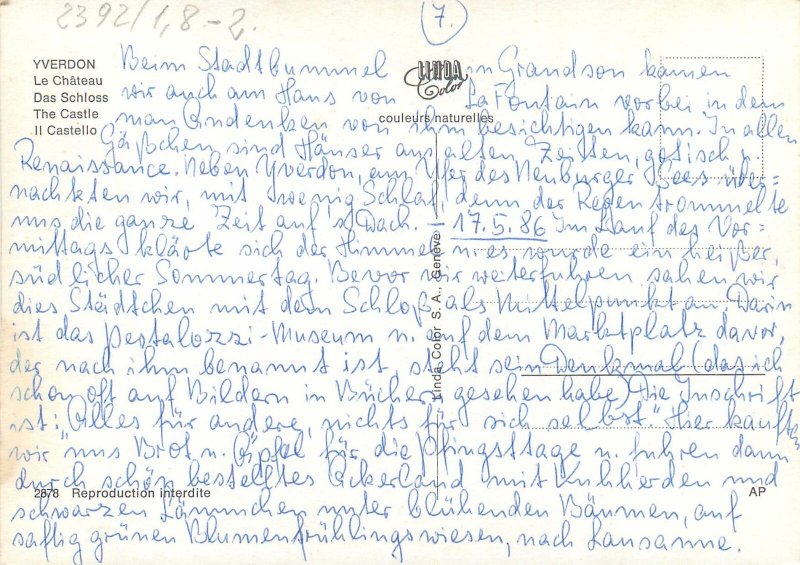 2392/1,8-2.
7.
YVERDON
Le Château
Das Schloss
The Castle
Il Castello
LINDA
Color
couleurs naturelles
Beim Stadtbummel in Grandson kamen
wir auch am Haus von La Fontain vorbei in dem
man Andenken von ihm besichtigen kann. In allen
Gäßchen sind Häuser aus alten Zeiten, gotisch,
Renaissance. Neben Yverdon, am Ufer des Neuburger Sees über=
nachteten wir, mit wenig Schlaf, denn der Regen trommelte
uns die ganze Zeit auf's Dach. – 17.5.86 Im Lauf des Vor=
mittags klärte sich der Himmel u. es wurde ein heißer,
südlicher Sommertag. Bevor wir weiterfuhren sahen wir
dies Städtchen mit dem Schloß als Mittelpunkt an. Darin
ist das Pestalozzi-Museum u. auf dem Marktplatz davor,
der nach ihm benannt ist, steht sein Denkmal (das ich
schon oft auf Bildern in Bücher gesehen habe) Die Inschrift
ist: "Alles für andere, nichts für sich selbst." Hier kauften
wir uns Brot u. Äpfel für die Pfingsttage u. fuhren dann
durch schön bestelltes Ackerland mit Kuhherden und
schwarzen Lämmchen unter blühenden Bäumen, auf
saftig grünen Blumenfrühlingswiesen, nach Lausanne.
Linda Color S. A., Genève
2878 Reproduction interdite
AP